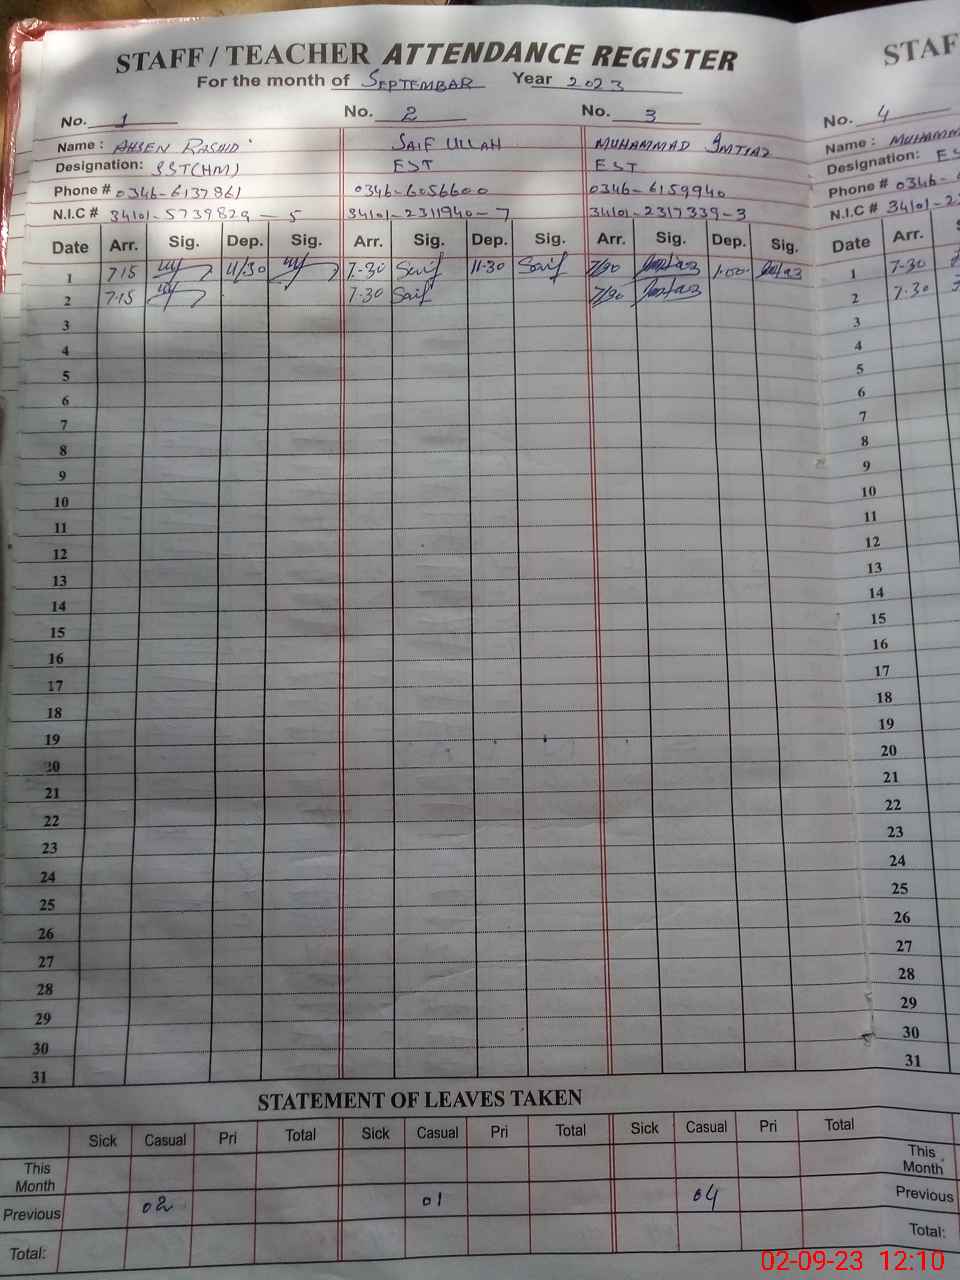 STAFF / TEACHER ATTENDANCE REGISTER
STAF
For the month of SEPTEMBAR Year 2023
No. 1 No. 2 No. 3 No. 4
Name : AHSEN RASHID SAIF ULLAH MUHAMMAD IMTIAZ Name : MUHAMM
Designation: SST(HM) EST EST Designation: ES
Phone # 0346-6137861 0346-6056600 0346-6159940 Phone # 0346-
N.I.C # 34101-5739829-5 34101-2311940-7 34101-2317339-3 N.I.C # 34101-23
Date Arr. Sig. Dep. Sig. Arr. Sig. Dep. Sig. Arr. Sig. Dep. Sig. Date Arr. S
1 7-15 11/30 7-30 Saif 11-30 Saif 7/30 Imtiaz 1-00 Imtiaz 1 7-30
2 7-15 7-30 Saif 7/30 Imtiaz 2 7-30
3 3
4 4
5 5
6 6
7 7
8 8
9 9
10 10
11 11
12 12
13 13
14 14
15 15
16 16
17 17
18 18
19 19
20 20
21 21
22 22
23 23
24 24
25 25
26 26
27 27
28 28
29 29
30 30
31 31
STATEMENT OF LEAVES TAKEN
Sick Casual Pri Total Sick Casual Pri Total Sick Casual Pri Total
This Month This Month
Previous 02 01 04 Previous
Total: Total:
02-09-23 12:10